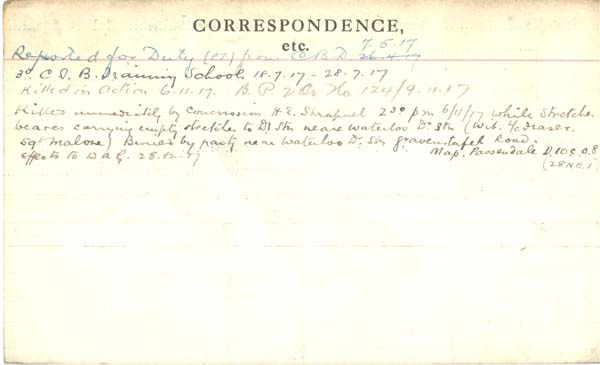 CORRESPONDENCE,
etc. 7.5.17
Reported for Duty (PT) from C.B.D. 26.4.17
3rd C.D. B. Training School. 18.7.17 - 28.7.17
Killed in Action 6.11.17. B.P. 2 Or. No 124/9.11.17
Killed immediately by concussion H.E. Shrapnel 230 pm 6/11/17 while stretcher
bearer carrying empty stretcher to D/ Stn neare Waterloo Dr Stn (Wit. L/c Fraser.
Sgt Malone) Buried by party near Waterloo Dr. Stn Gravenstafel Road.
effects to DAG. 28.12.17 Map. Passendale D.10.c.0.8
(28 N.E.1)